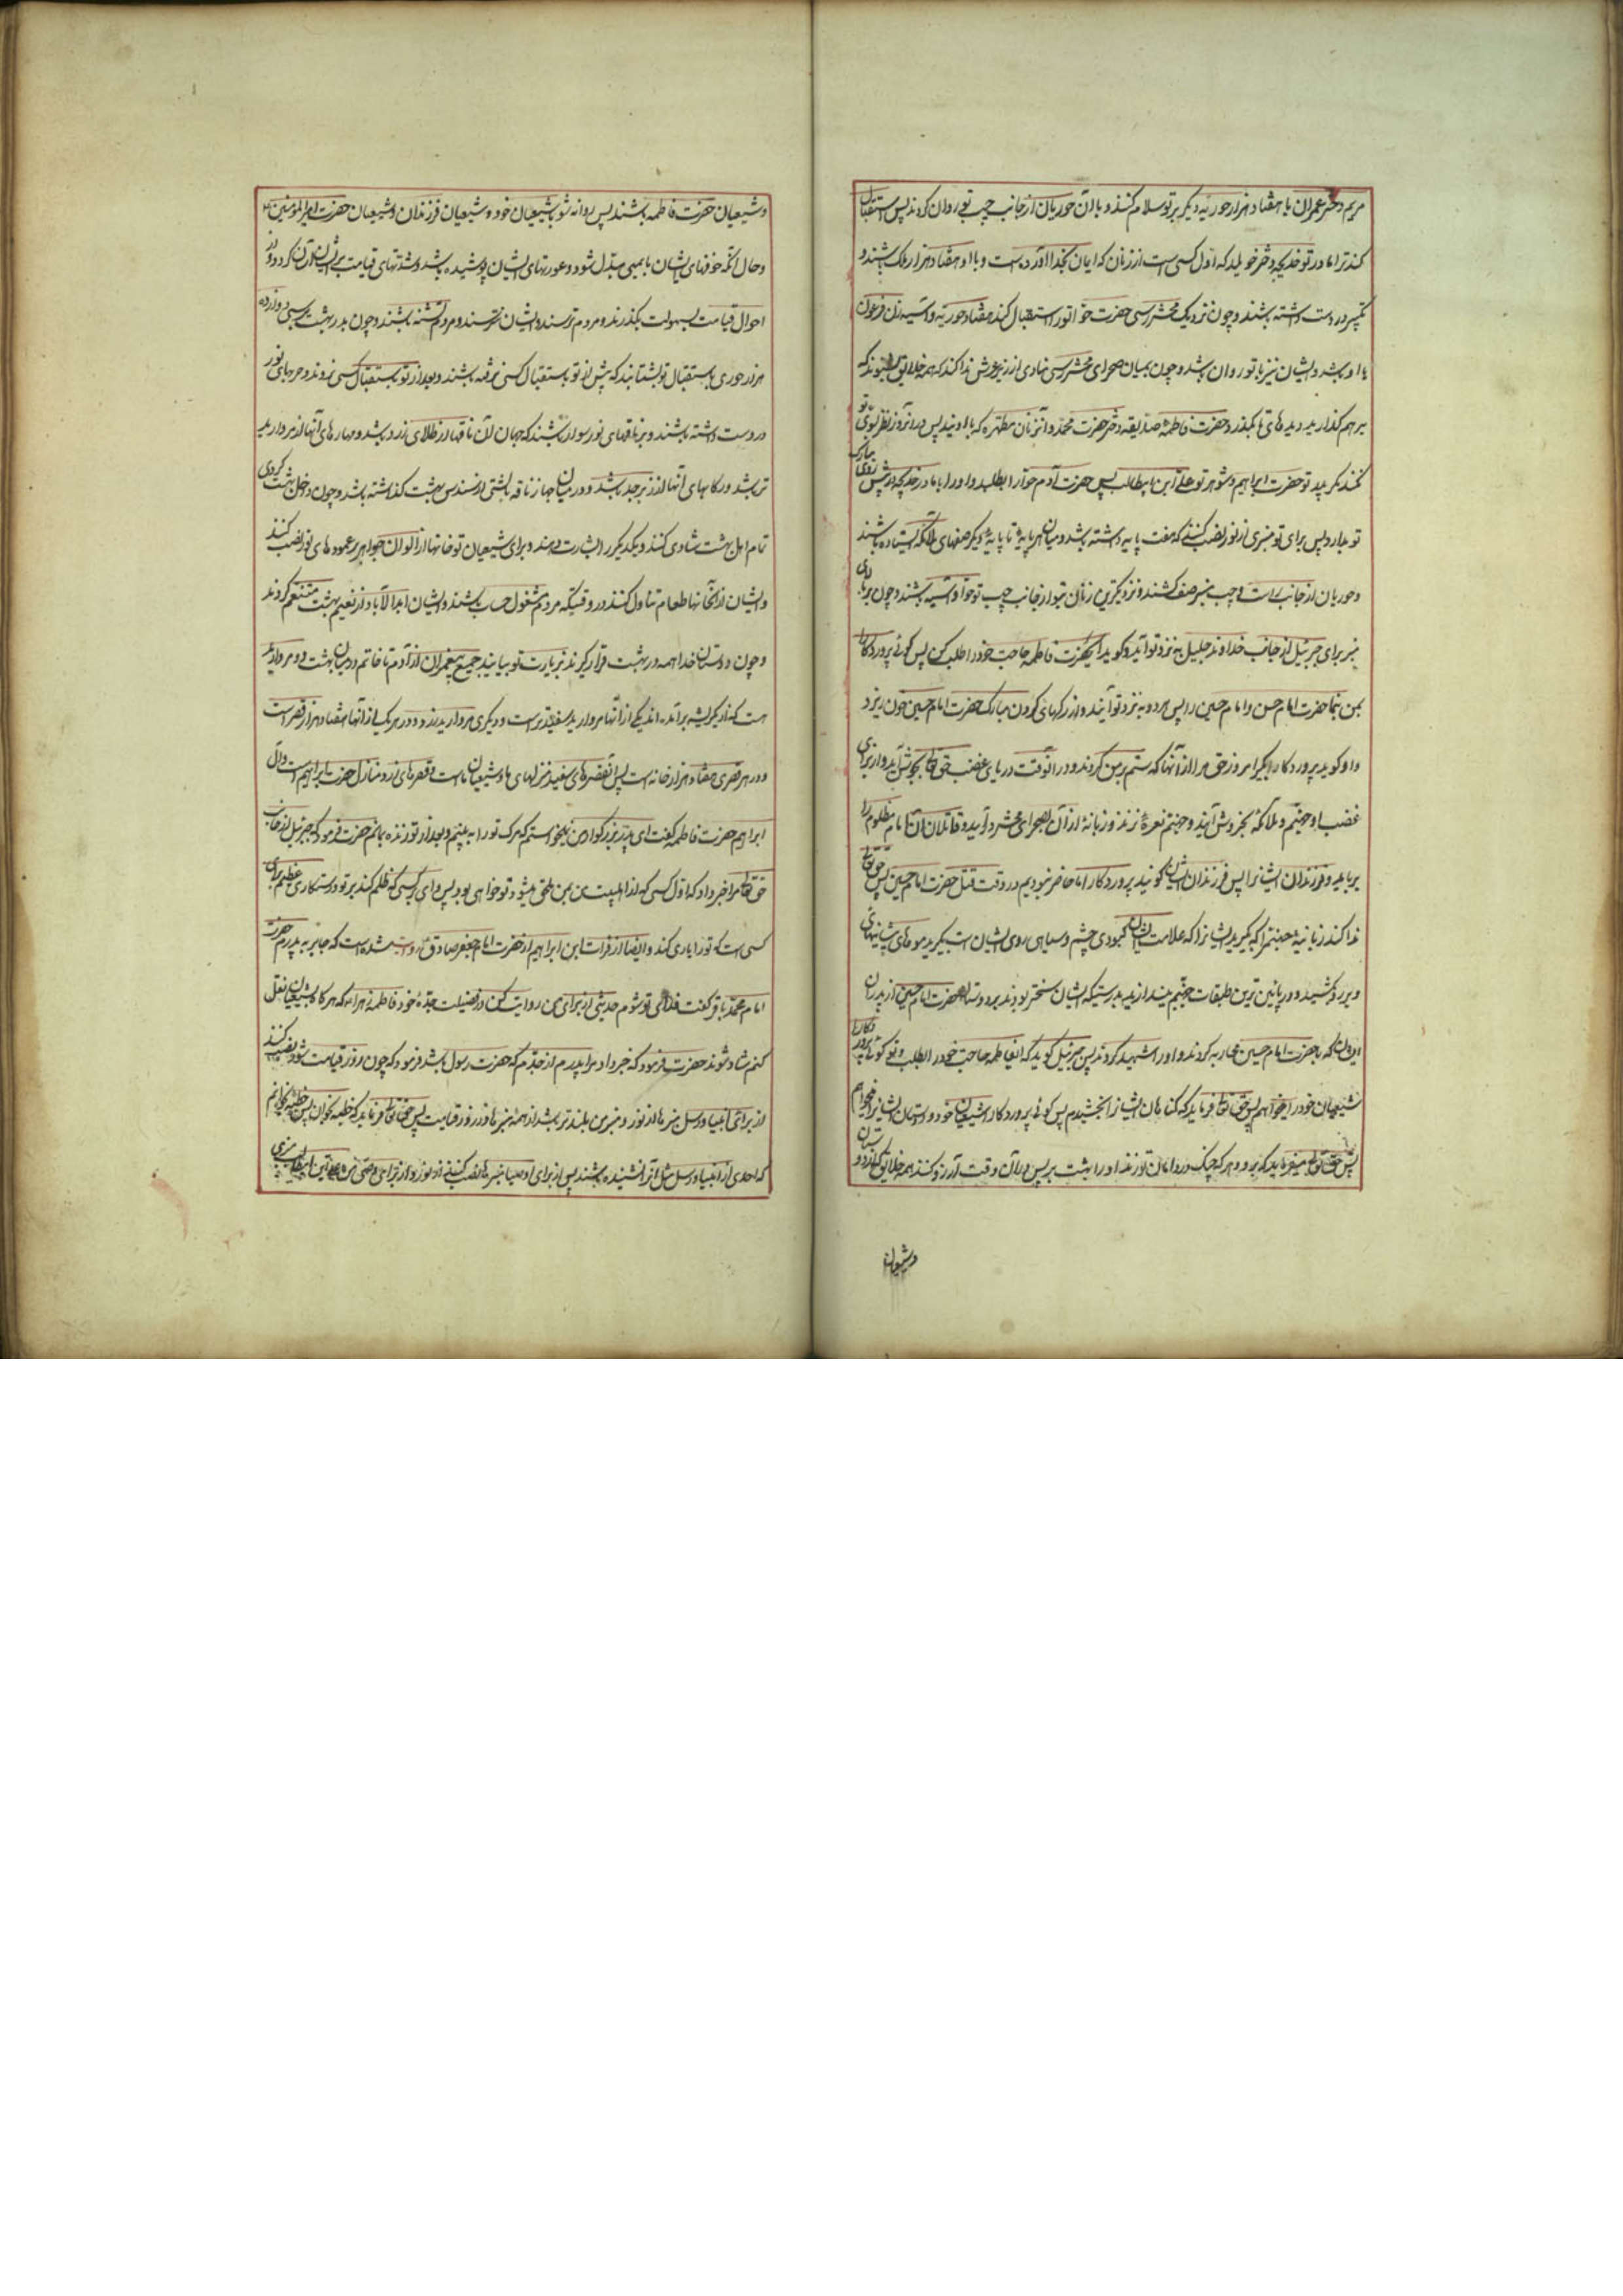 مریم دختر عمران با هفتاد هزار حوریه دیگر بر تو سلام کنند و با آن حوریان از جانب چپ تو روان گردند پس استقبال
کند ترا مادر تو خدیجه دختر خویلد که اول کسی است از زنان که ایمان بخدا آورده است و با او هفتاد هزار ملک باشند و
در دست داشته باشند و چون نزدیک محشر رسی حضرت حوا تو را استقبال کند با هفتاد حوریه و آسیه زن فرعون
با او باشد و ایشان نیز با تو روان باشند و چون بمیان صحرای محشر رسی منادی از زیر عرش ندا کند که همه خلایق بشنوند که
بر هم گذارید دیده های تا بگذرد حضرت فاطمه صدیقه دختر حضرت محمد و آن زنان مطهره که با اویند پس در آن روز نظر بسوی تو
نکند مگر پدر تو حضرت ابراهیم و شوهر تو علی ابن ابیطالب پس حضرت آدم حوا را بطلبد و او را با مادرت خدیجه در پیش روی مبارک
تو بدارد پس برای تو منبری از نور نصب کنند که هفت پایه داشته باشد و میان هر پایه تا پایه دیگر صفهای ملائکه ایستاده باشند
و حوریان از جانب راست و چپ منبر صف کشند و نزدیکترین زنان بتو از جانب چپ تو حوا و آسیه باشند و چون بر بالای
منبر برای جبرئیل از جانب خداوند جلیل به نزد تو آید و گوید ای حضرت فاطمه حاجت خود را طلب کن پس گوئی پروردگارا
بمن بنما حضرت امام حسن و امام حسین را پس هر دو به نزد تو آیند و از رگهای گردن مبارک حضرت امام حسین خون ریزد
و او گوید پروردگارا بگیر امروز حق مرا از آنها که ستم بر من کردند و در آنوقت دریای غضب حق تعالی بجوش آید و از برای
غضب او جهنم و ملائکه بخروش آیند و جهنم نعره زند و زبانه از آن بصحرای محشر در آید و قاتلان آن امام مظلوم را
برباید و فرزندان ایشان را پس فرزندان ایشان گویند پروردگارا ما حاضر نبودیم در وقت قتل حضرت امام حسین پس حق تعالی
ندا کند زبانیه جهنم را که بگیرید ایشان را که علامت ایشان کبودی چشم و سیاهی روی ایشان است بگیرید موهای پیشانیهای
و بر رو کشید و در پائین ترین طبقات جهنم بیندازید بدرستیکه ایشان سختتر بودند بر دوستان حضرت امام حسین از پدران
ایشان که با حضرت امام حسین محاربه کردند و او را شهید کردند پس جبرئیل گوید که ای فاطمه حاجت خود را طلب و تو گوئی پروردگارا
شیعیان خود را میخواهم پس حق تعالی فرماید که گناهان ایشان را بخشیدم پس گوئی پروردگارا شیعیان خود و دوستان ایشان را میخواهم
پس حق تعالی میفرماید که برو و هر که چنگ در دامان تو زند او را بهشت بر پس در آن وقت آرزو کنند همه خلایق که از دوستان
وشیعیان
و شیعیان حضرت فاطمه باشند پس روانه شو با شیعیان خود و شیعیان فرزندان و شیعیان حضرت امیر المؤمنین
و حال آنکه خوفهای ایشان بایمنی مبدل شود و عورتهای ایشان پوشیده باشد و شدتهای قیامت بر ایشان آسان گردد و از
احوال قیامت بسهولت بگذرند و مردم ترسند و ایشان نترسند و مردم تشنه باشند و چون بدر بهشت رسی دوازده
هزار حوری باستقبال تو بشتابند که پیش از تو باستقبال کسی نرفته باشند و بعد از تو باستقبال کسی نروند و حربهای نور
در دست داشته باشند و بر ناقهای نور سوار باشند که جهاز آن ناقها از طلای زرد باشد و مهارهای آنها از مروارید
تر باشد و رکابهای آنها از زبرجد باشد و در میان جهاز ناقه بالشتی از سندس بهشت گذاشته باشد و چون داخل بهشت گردی
تمام اهل بهشت شادی کنند و یکدیگر را بشارت دهند و برای شیعیان تو خانها از الوان جواهر بر عمودهای نور نصب کنند
و ایشان از آنخانها طعام تناول کنند در وقتیکه مردم مشغول حساب باشند و ایشان ابد الآباد از نعیم بهشت متنعم گردند
و چون دوستان خدا همه در بهشت قرار گیرند بزیارت تو بیایند جمیع پیغمبران از آدم تا خاتم و در میان بهشت دو مروارید
هست که از یک ریشه برآمده اند یکی از آنها مروارید سفید تر است و دیگری مروارید زرد و در هر یک از آنها هفتاد هزار قصر است
و در هر قصری هفتاد هزار خانه است پس آن قصرهای سفید منزلهای ما و شیعیان ماست و قصرهای زرد منازل حضرت ابراهیم است و آل
ابراهیم حضرت فاطمه گفت ای پدر بزرگوار من نمیخواستم که مرگ تو را به بینم و بعد از تو زنده بمانم حضرت فرمود که جبرئیل از جانب
حق تعالی مرا خبر داد که اول کسی که از اهلبیت من بمن ملحق میشود تو خواهی بود پس وای بر کسی که ظلم کند بر تو و رستگاری عظیم برای
کسی است که تو را یاری کند و ایضا از فرات ابن ابراهیم از حضرت امام جعفر صادق روایت شده است که جابر به پدرم حضرت
امام محمد باقر گفت فدای تو شوم حدیثی از برای من روایت کن در فضیلت جده خود فاطمه زهرا که هر گاه بشیعیان نقل
کنم شاد شوند حضرت فرمود که خبر داد مرا پدرم از جدم که حضرت رسول باشد فرمود که چون روز قیامت شود نصب کنند
از برای انبیا و رسل منبرها از نور و منبر من بلندتر باشد از همه منبرها در روز قیامت پس حق تعالی فرماید که خطبه بخوان پس خطبه بخوانم
که احدی از انبیا و رسل مثل آنرا نشنیده باشند پس از برای اوصیا منبرها نصب کنند از نور و از برای وصی من علی ابن ابیطالب منبری